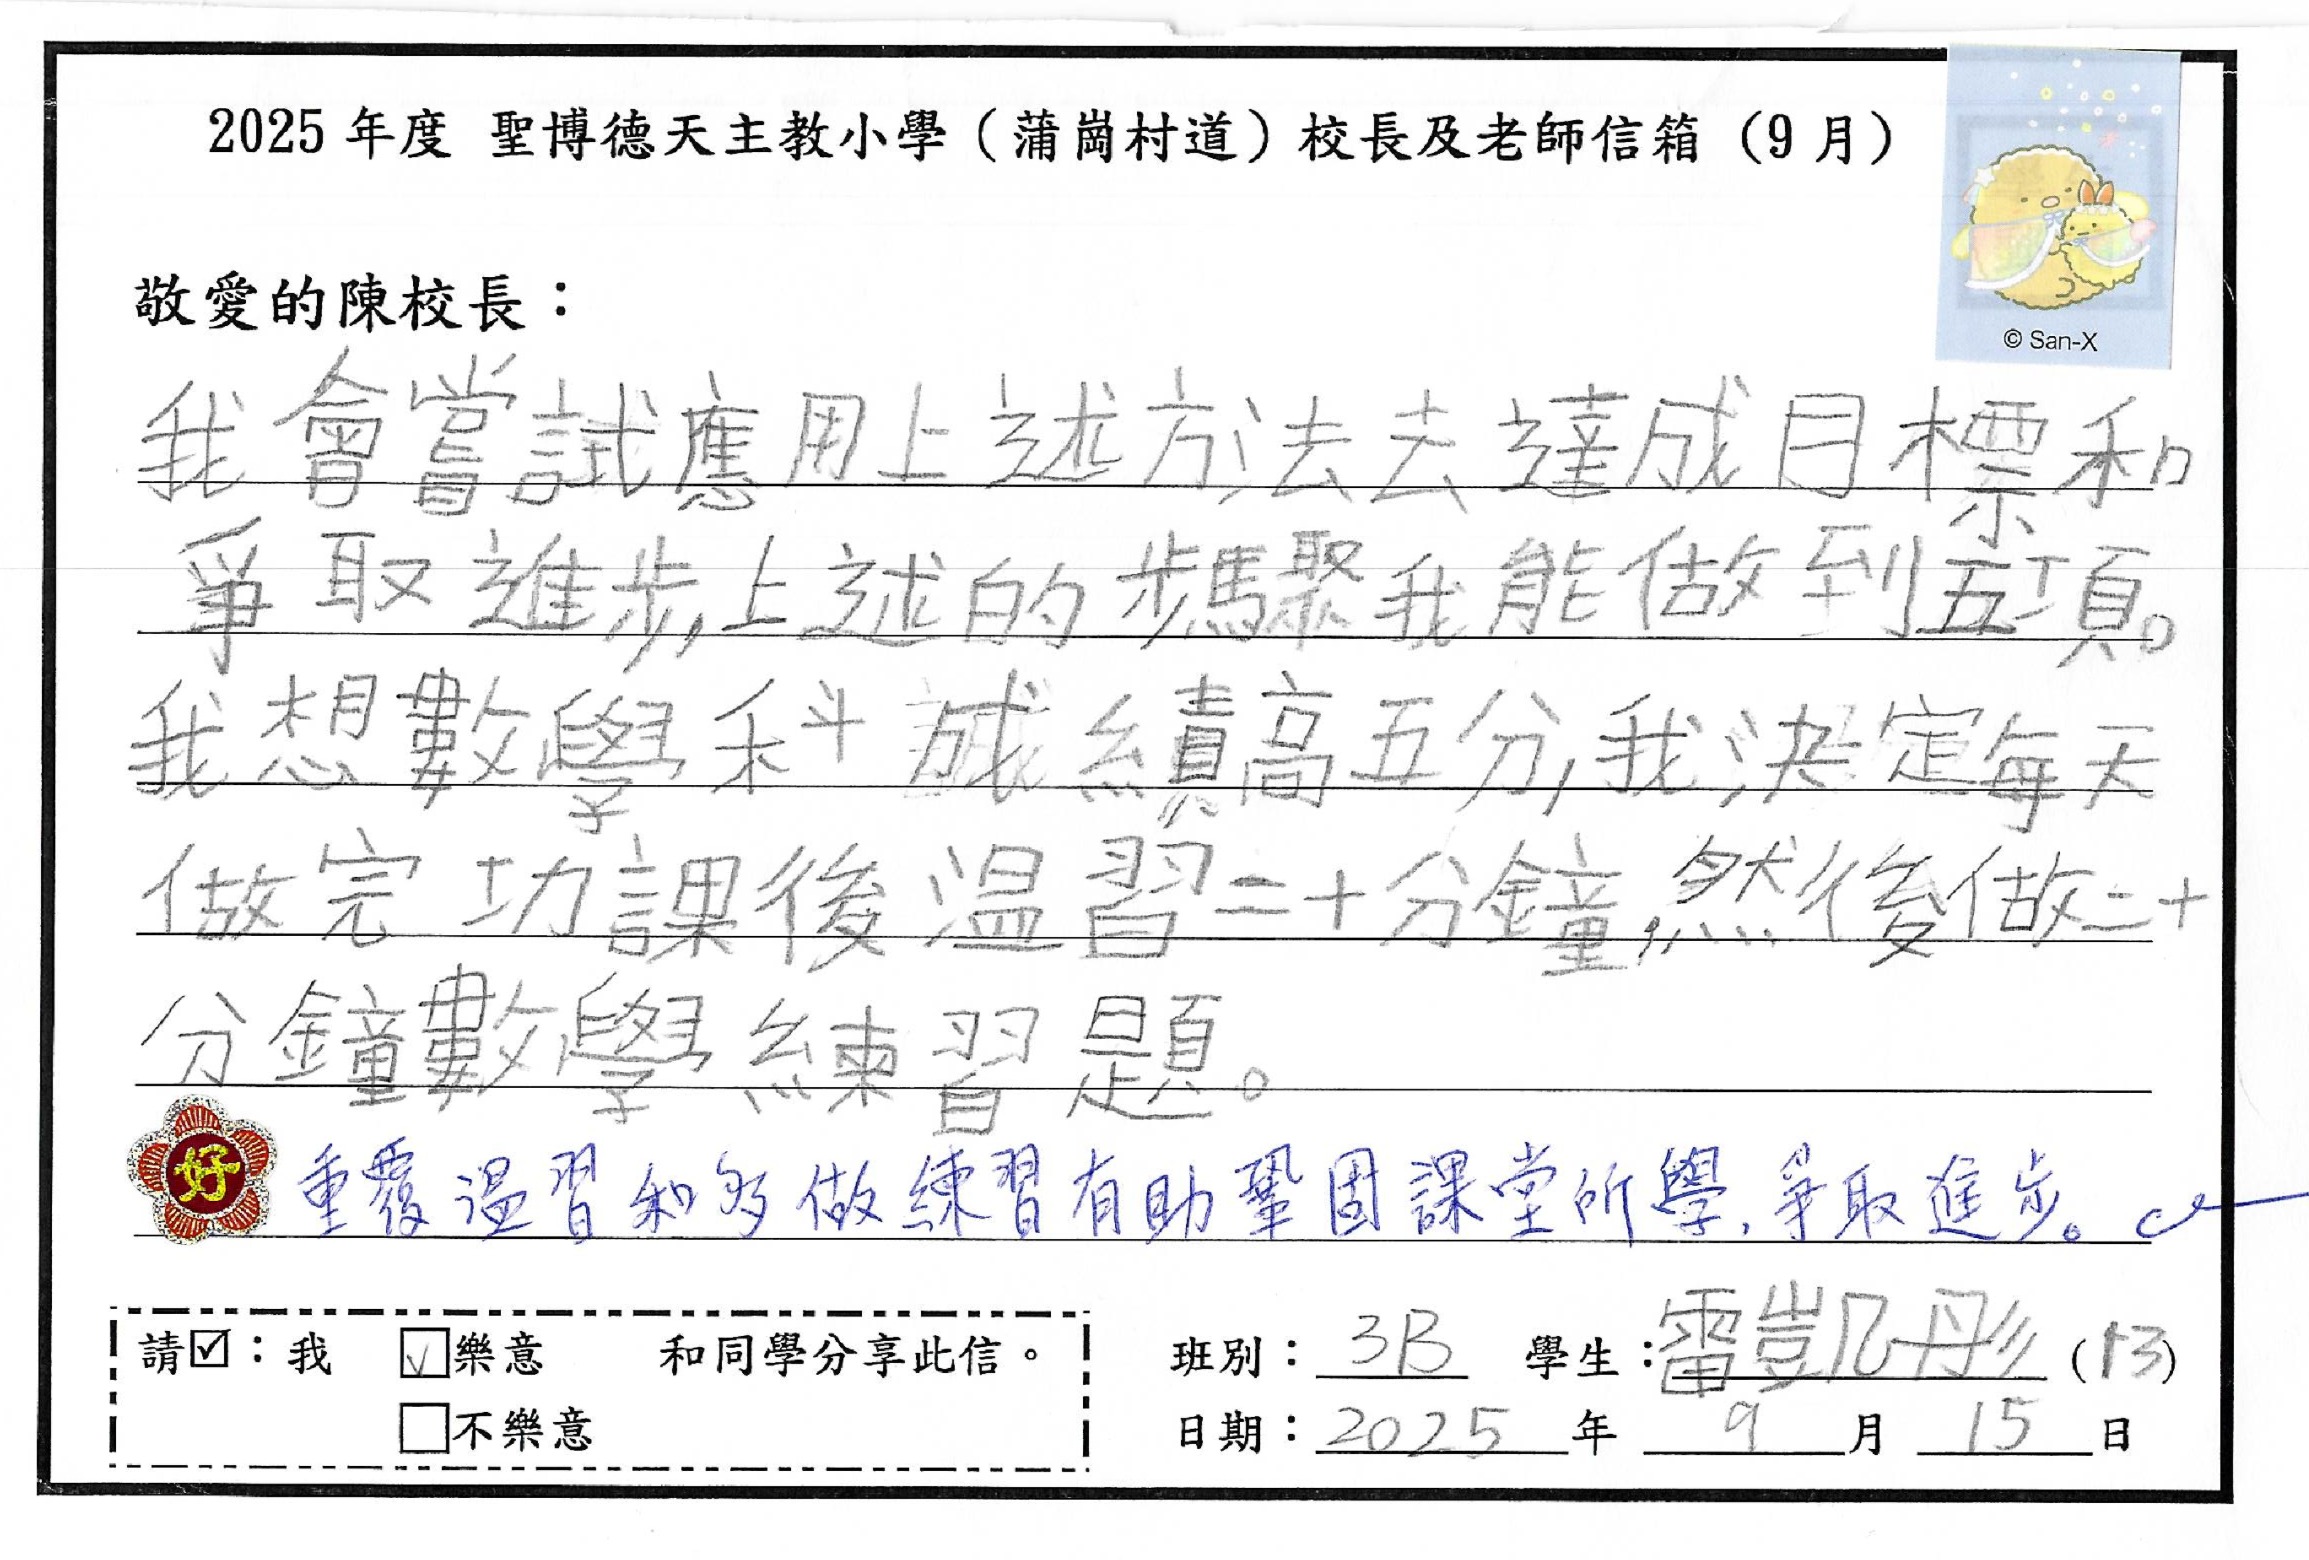 2025 年度 聖博德天主教小學（蒲崗村道）校長及老師信箱（9 月）
© San-X
敬愛的陳校長：
我會嘗試應用上述方法去達成目標和
爭取進步,上述的步驟我能做到五項。
我想數學科成績高五分,我決定每天
做完功課後溫習二十分鐘,然後做二十
分鐘數學練習題。
好
重覆溫習和多做練習有助鞏固課堂所學,爭取進步。
請☑：我 ☑樂意 和同學分享此信。
□不樂意
班別：3B 學生：雷凱彤 (13)
日期：2025 年 9 月 15 日